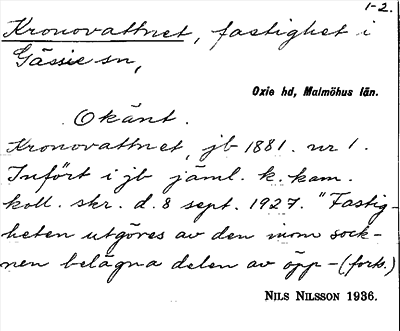 1-2.
Kronovattnet, fastighet i
Gässie sn,
Oxie hd, Malmöhus län.
Okänt.
Kronovattnet, jb 1881. nr 1.
Infört i jb jäml. k. kam.
koll. skr. d. 8 sept. 1927. "Fastig-
heten utgöres av den inom sock-
nen belägna delen av öpp-(forts.)
NILS NILSSON 1936.